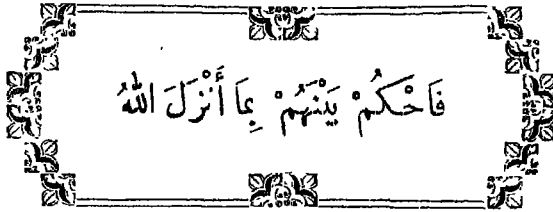 فَاحْكُمْ بَيْنَهُمْ بِمَا أَنْزَلَ اللهُ